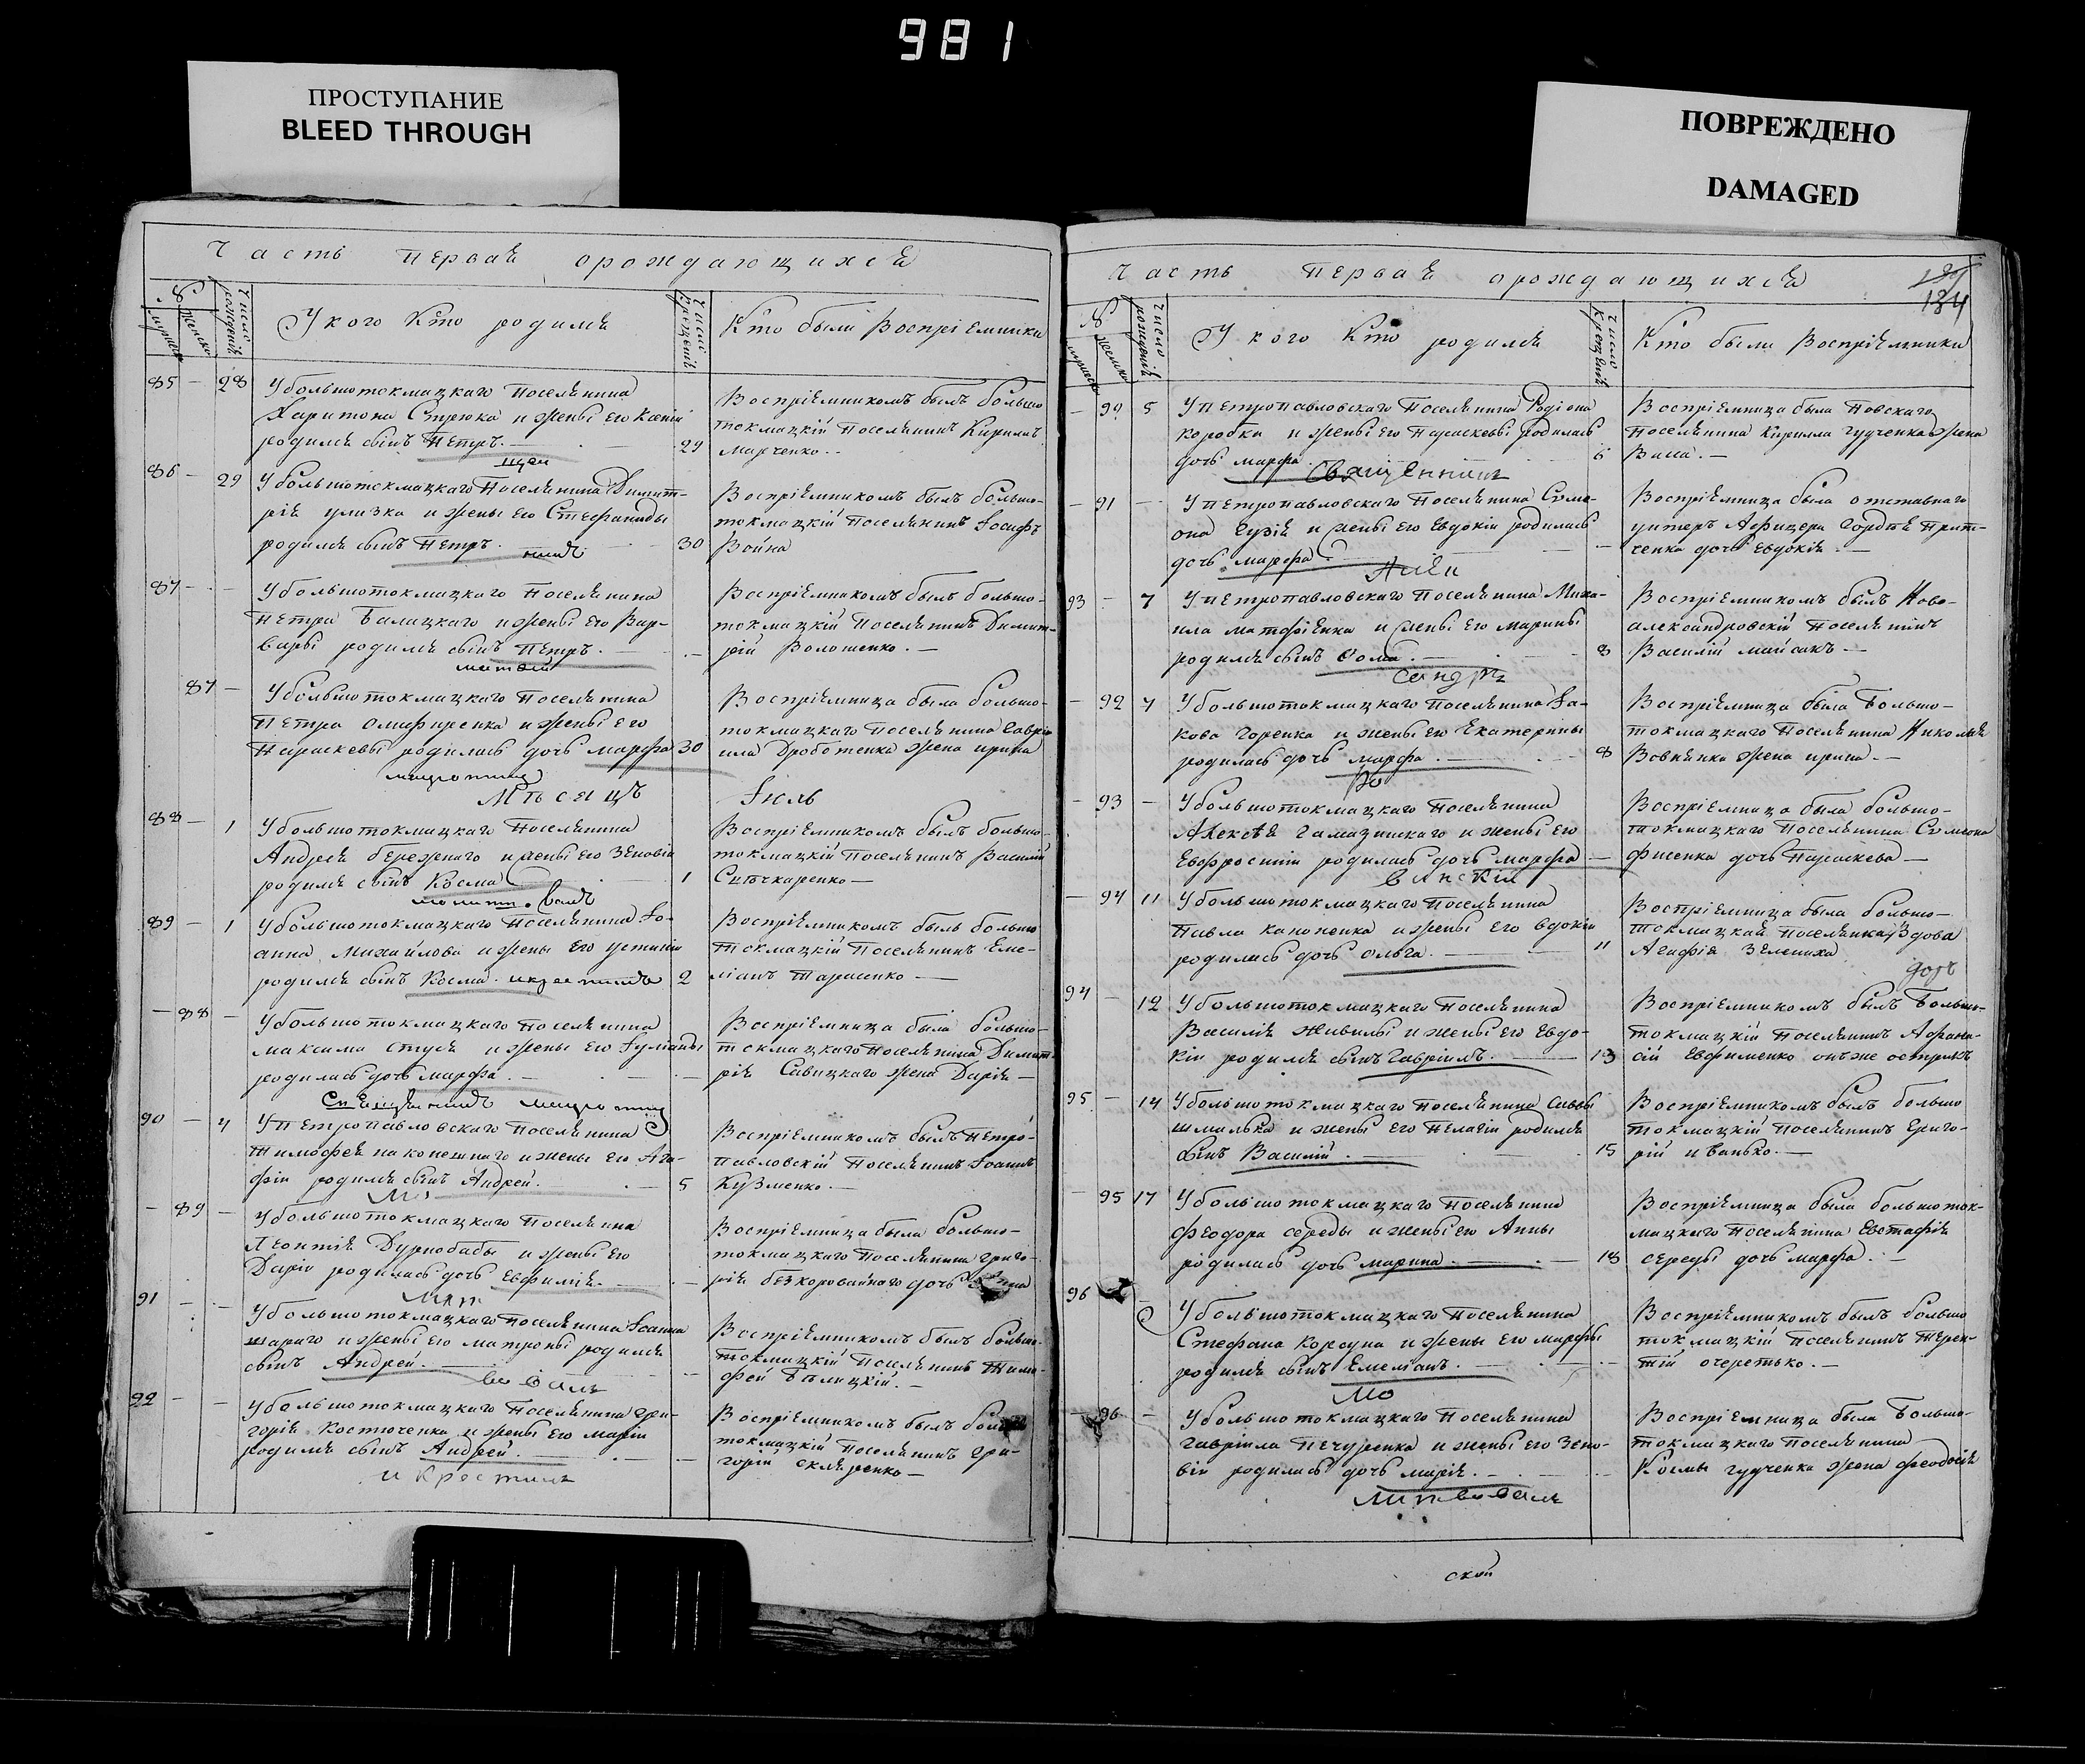 981
ПРОСТУПАНИЕ
BLEED THROUGH
ПОВРЕЖДЕНО
DAMAGED
Часть первая о рождающихся
№
Число рожденія
У кого кто родился
Число крещенія
Кто были Воспріемники
85 — 28 У большотокмацкаго Поселянина
Харитона Стрюка и жены его Ксеніи
родился сынъ Петръ. — 29
Воспріемникомъ былъ большо
токмацкій Поселянинъ Кирилъ
Марченко. —
86 29 У большотокмацкаго Поселянина Димит-
рія улизка и жены его Стефаниды
родился сынъ Петръ. 30
Воспріемникомъ былъ большо-
токмацкій Поселянинъ Іосифъ
Война
87 — - У большотокмацкаго Поселянина
Петра Балицкаго и жены его Вар-
вары родился сынъ Петръ. —
Воспріемникомъ былъ большо-
токмацкій Поселянинъ Димит-
рій Волошенко. —
87 — У большотокмацкаго Поселянина
Петра Онифиренка и жены его
Параскевы родилась дочь марфа 30
Воспріемница была большо-
токмацкаго Поселянина Гаврі-
ила Дроботенка жена ирина
Мѣсяцъ Іюль
88 — 1 У большотокмацкаго Поселянина
Андрея бережнаго и жены его Зеновіи
родился сынъ Косма 1
Воспріемникомъ былъ большо-
токмацкій Поселянинъ Василій
89 — 1 У большотокмацкаго Поселянина Іо-
анна Михайлова и жены его устиніи
родился сынъ Косма. 2
Воспріемникомъ былъ большо
токмацкій Поселянинъ Еме-
ліанъ Тарасенко —
— 88 — У большотокмацкаго Поселянина
максима стуся и жены его Іуліаніи
родилась дочь марфа. —
Воспріемница была большо-
токмацкаго Поселянина Димит-
рія Савицкаго жена Дарія —
90 — 4 У Петропавловскаго Поселянина
Тимофея наконешнаго и жены его Ага-
фіи родился сынъ Андрей. — 5
Воспріемникомъ былъ Петро-
павловскій Поселянинъ Іоаннъ
Кузменко. —
— 89 — У большотокмацкаго Поселянина
Леонтія Дурнобабы и жены его
Даріи родилась дочь Евфимія. —
Воспріемница была большо-
токмацкаго Поселянина григо-
рія безкоровайнаго дочь
91 — - У большотокмацкаго Поселянина Іоанна
шараго и жены его матроны родился
сынъ Андрей. —
Воспріемникомъ былъ большо-
токмацкій Поселянинъ Тимо-
фей Балицкій. —
92 — — У большотокмацкаго Поселянина Гри-
горія Костюченка и жены его маріи
родился сынъ Андрей. —
и крестилъ
Воспріемникомъ былъ
токмацкій Поселянинъ Гри-
горій Скляренко —
Часть первая о рождающихся
134
№
Число рожденія
У кого кто родился
Число крещенія
Кто были Воспріемники
— 90 5 У Петропавловскаго Поселянина Родіона
коробки и жены его Параскевы родилась
дочь марфа. 6
Священникъ
Поселянина Кирилла гудченка жена
— 91 — У Петропавловскаго Поселянина Симе-
она Гузія и жены его Евдокіи родилась
дочь марфа. —
Воспріемница была отставнаго
унтеръ Афицера Гордѣя Прит-
ченка дочь Евдокія. —
93 7 У Петропавловскаго Поселянина Миха-
ила матфіенка и жены его марины
родился сынъ Ѳома. — 8
Воспріемникомъ былъ Ново-
александровскій Поселянинъ
Василій майсакъ —
— 92 7 У большотокмацкаго Поселянина Іа-
кова горенка и жены его Екатерины
родилась дочь марфа. — 8
Воспріемница была Большо-
токмацкаго Поселянина Николая
Вовнянка жена ирина. —
— 93 — У большотокмацкаго Поселянина
Алексѣя Гамацинскаго и жены его
Евфросиніи родилась дочь марфа —
Воспріемница была большо-
токмацкаго Поселянина Симеона
Фисенка дочь Параскева —
— 94 11 У большотокмацкаго Поселянина
Павла Кононенка и жены его Евдокіи
родилась дочь Ольга. — 11
Воспріемница была большо-
токмацкая Поселянка Вдова
Агафія Зелениха
94 — 12 У большотокмацкаго Поселянина
Василія Живилы и жены его Евдо-
кіи родился сынъ Гавріилъ. — 13
Воспріемникомъ былъ Большо-
токмацкій Поселянинъ Афана-
сій Евфименко онъ же остряк
95 — 14 У большотокмацкаго Поселянина Саввы
шмалька и жены его Пелагіи родился
сынъ Василій. — 15
Воспріемникомъ былъ большо
токмацкій Поселянинъ Григо-
рій иванько. —
— 95 17 У большотокмацкаго Поселянина
Феодора середы и жены его Анны
родилась дочь марина. — 18
Воспріемница была большоток-
мацкаго Поселянина Евстафія
середы дочь марфа. —
96 У большотокмацкаго Поселянина
Стефана Корсуна и жены его марфы
родился сынъ Емеліанъ. —
Воспріемникомъ былъ большо
токмацкій Поселянинъ Терен-
тій очеретько. —
— 96 — У большотокмацкаго Поселянина
Гавріила Печуренка и жены его Зено-
віи родилась дочь марія. —
Воспріемница была Большо-
токмацкаго Поселянина
Космы гудченка жена феодосія
ской